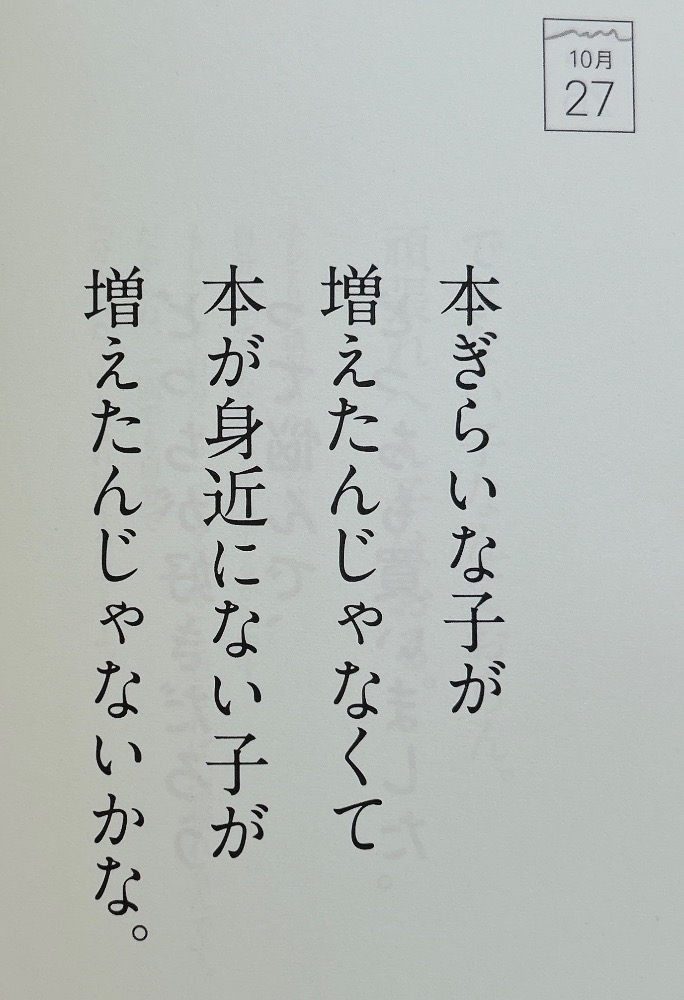 10月
27
本ぎらいな子が
増えたんじゃなくて
本が身近にない子が
増えたんじゃないかな。